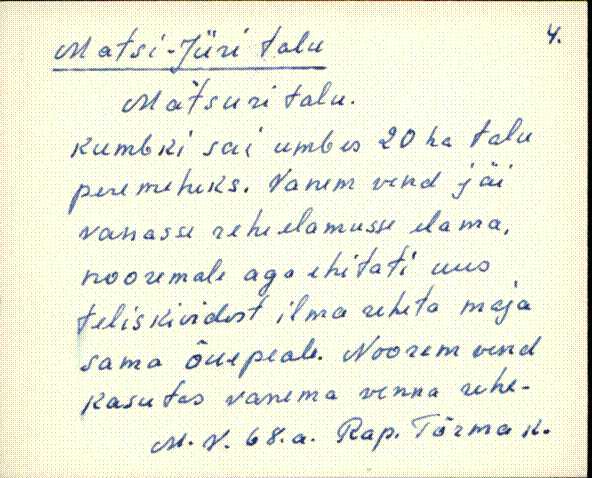 4.
Matsi-Jüri talu
Matsuri talu.
kumbki sai umbes 20 ha talu
peremeheks. Vanem vend jäi
vanasse reheelamusse elama,
nooremale aga ehitati uus
teliskividest ilma reheta maja
sama õuepeale. Noorem vend
kasutas vanema venna rehe-
M. V. 68.a. Rap. Tõrma k.